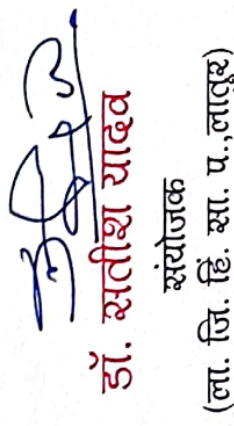 डॉ. सतीश यादव
संयोजक
(ला. जि. हिं. सा. प.,लातूर)